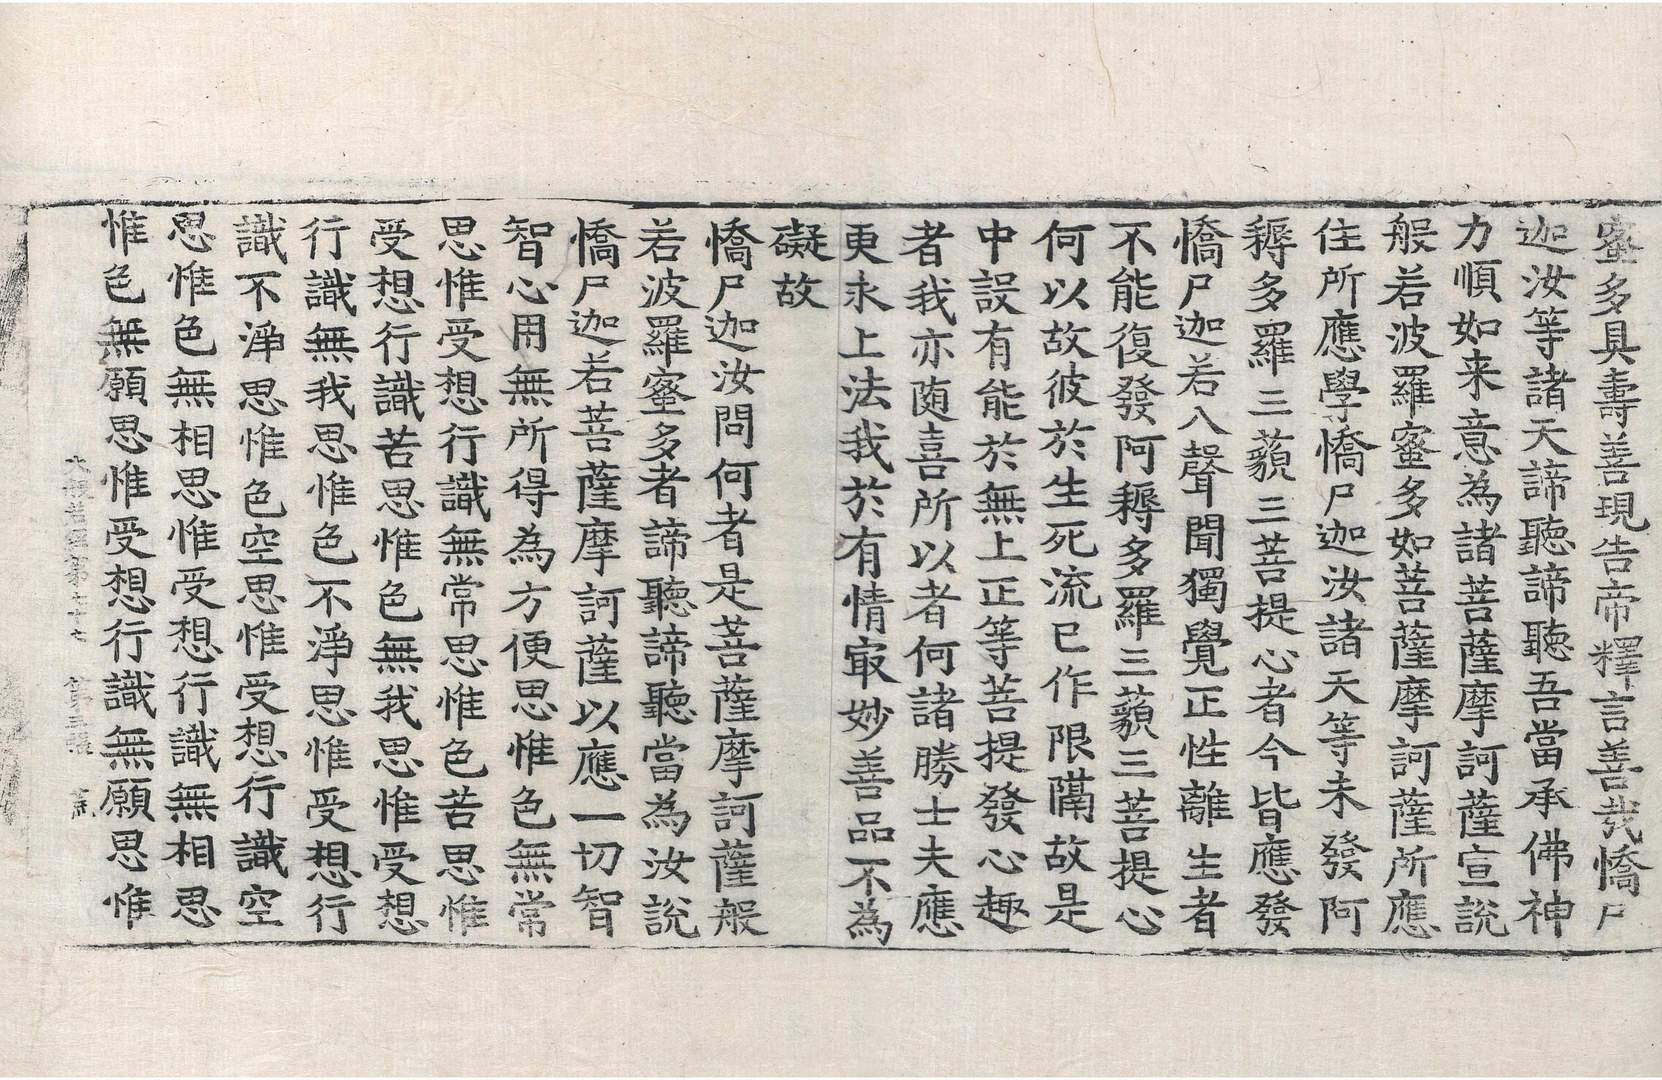 蜜多具壽善現告帝釋言善哉憍尸
迦汝等諸天諦聽諦聽吾當承佛神
力順如来意為諸菩薩摩訶薩宣說
般若波羅蜜多如菩薩摩訶薩所應
住所應學憍尸迦汝諸天等未發阿
耨多羅三藐三菩提心者今皆應發
憍尸迦若入聲聞獨覺正性離生者
不能復發阿耨多羅三藐三菩提心
何以故彼於生死流已作限隔故是
中設有能於無上正等菩提發心趣
者我亦随喜所以者何諸勝士夫應
更求上法我於有情㝡妙善品不為
礙故
憍尸迦汝問何者是菩薩摩訶薩般
若波羅蜜多者諦聽諦聽當為汝說
憍尸迦若菩薩摩訶薩以應一切智
智心用無所得為方便思惟色無常
思惟受想行識無常思惟色苦思惟
受想行識苦思惟色無我思惟受想
行識無我思惟色不淨思惟受想行
識不淨思惟色空思惟受想行識空
思惟色無相思惟受想行識無相思
惟色無願思惟受想行識無願思惟
大般若經第七十七 第五張